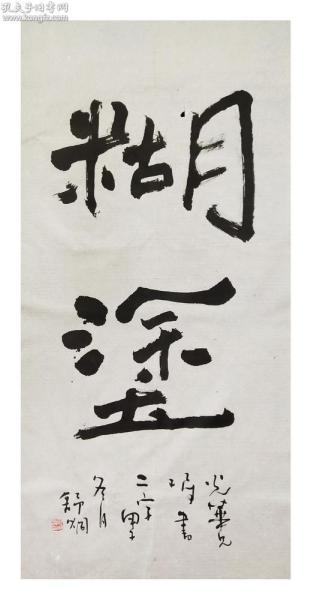 孔夫子旧书网
www.kongfz.com
糊
塗
光華兄
嘱書
二字甲子
冬月
舒炯